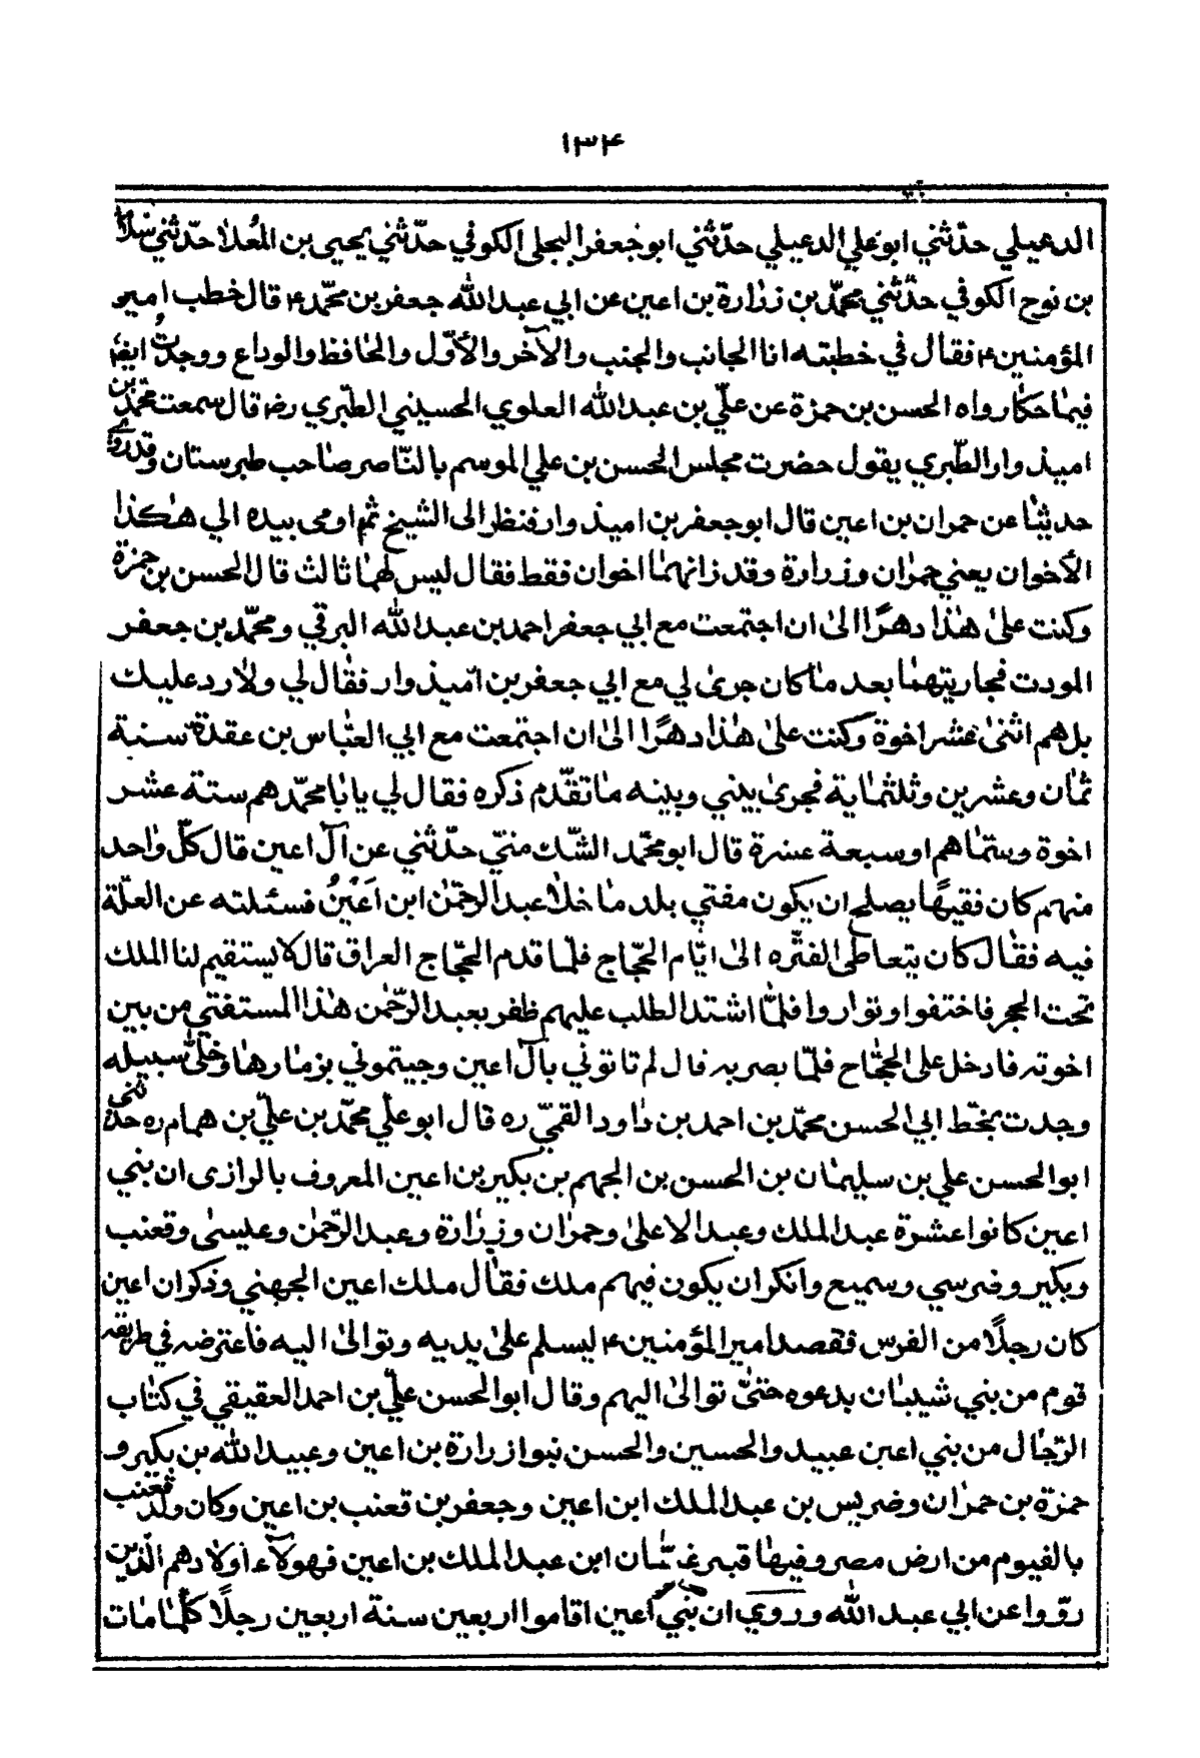 ١٣٤
الدعبلي حدّثني ابو علي الدعبلي حدّثني ابو جعفر البجلي الكوفي حدّثني يحيى بن المُعلا حدّثني
بن نوح الكوفي حدّثني محمّد بن زرارة بن اعين عن ابي عبدالله جعفر بن محمّد ٤ قال خطب امير
المؤمنين ٤ فقال في خطبته انا الجانب والجنب والآخر والأوّل والحافظ والوداع ووجدتُ ايضا
فيما حكا رواه الحسن بن حمزة عن عليّ بن عبدالله العلوي الحسيني الطّبري رض قال سمعت محمّد بن
اميذ وار الطّبري يقول حضرت مجلس الحسن بن علي الموسم بالنّاصر صاحب طبرستان وقد روى
حديثا عن حمران بن اعين قال ابو جعفر بن اميذ وار فنظر الى الشيخ ثم اومى بيده الي هكذا
الأخوان يعني حمران وزرارة وقد زانهما اخوان فقط فقال ليس لهما ثالث قال الحسن بن حمزة
وكنت على هذا دهرًا الى ان اجتمعت مع ابي جعفر احمد بن عبدالله البرقي ومحمّد بن جعفر
المودت فجاريتهما بعد ما كان جرى لي مع ابي جعفر بن اميذ وار فقال لي ولا رد عليك
بل هم اثنى عشر اخوة وكنت على هذا دهرًا الى ان اجتمعت مع ابي العبّاس بن عقدة سنة
ثمان وعشرين وثلثماية فجرى بيني وبينه ما تقدّم ذكره فقال لي يا با محمّد هم ستة عشر
اخوة وسمّاهم او سبعة عشرة قال ابو محمّد الشّك منّي حدّثني عن آل اعين قال كلّ واحد
منهم كان فقيهًا يصلح ان يكون مفتي بلد ما خلا عبد الرّحمٰن ابن اَعْيَنُ فسئلته عن العلّة
فيه فقال كان يتعاطى الفتره الى ايّام الحجّاج فلمّا قدم الحجّاج العراق قال لا يستقيم لنا الملك
تحت الحجر فاختفوا وتواروا فلمّا اشتد الطلب عليهم ظفر بعبد الرّحمٰن هذا المستفتي من بين
اخوته فادخل على الحجّاح فلمّا بصر به قال لم تاتوني بآل اعين وجيتموني بزمارها وخلّى سبيله
وجدت بخطّ ابي الحسن محمّد بن احمد بن داود القمّي ره قال ابو علّي محمّد بن عليّ بن همام ره حدّثني
ابو الحسن علي بن سليمان بن الحسن بن الجهم بن بكير بن اعين المعروف بالرازى ان بني
اعين كانوا عشرة عبد الملك وعبد الاعلى وحمران وزرارة وعبد الرّحمٰن وعيسى وقعنب
وبكير وضرسي وسميع وانكر ان يكون فيهم ملك فقال ملك اعين الجهني وذكر ان اعين
كان رجلًا من الفرس فقصد امير المؤمنين ٤ ليسلم على يديه وتوالى اليه فاعترضه في طريقه
قوم من بني شيبان بدعوه حتىّ توالى اليهم وقال ابو الحسن عليّ بن احمد العقيقي في كتاب
الرّجال من بني اعين عبيد والحسين والحسن بنوا زرارة بن اعين وعبيدالله بن بكير و
حمزة بن حمران وضريس بن عبد الملك ابن اعين وجعفر بن قعنب بن اعين وكان ولد قعنب
بالفيوم من ارض مصر وفيها قبر غسّان ابن عبد الملك بن اعين فهولآء اولادهم الّذين
روّوا عن ابي عبدالله وروي ان بني اعين اقاموا اربعين سنة اربعين رجلًا كلّما مات